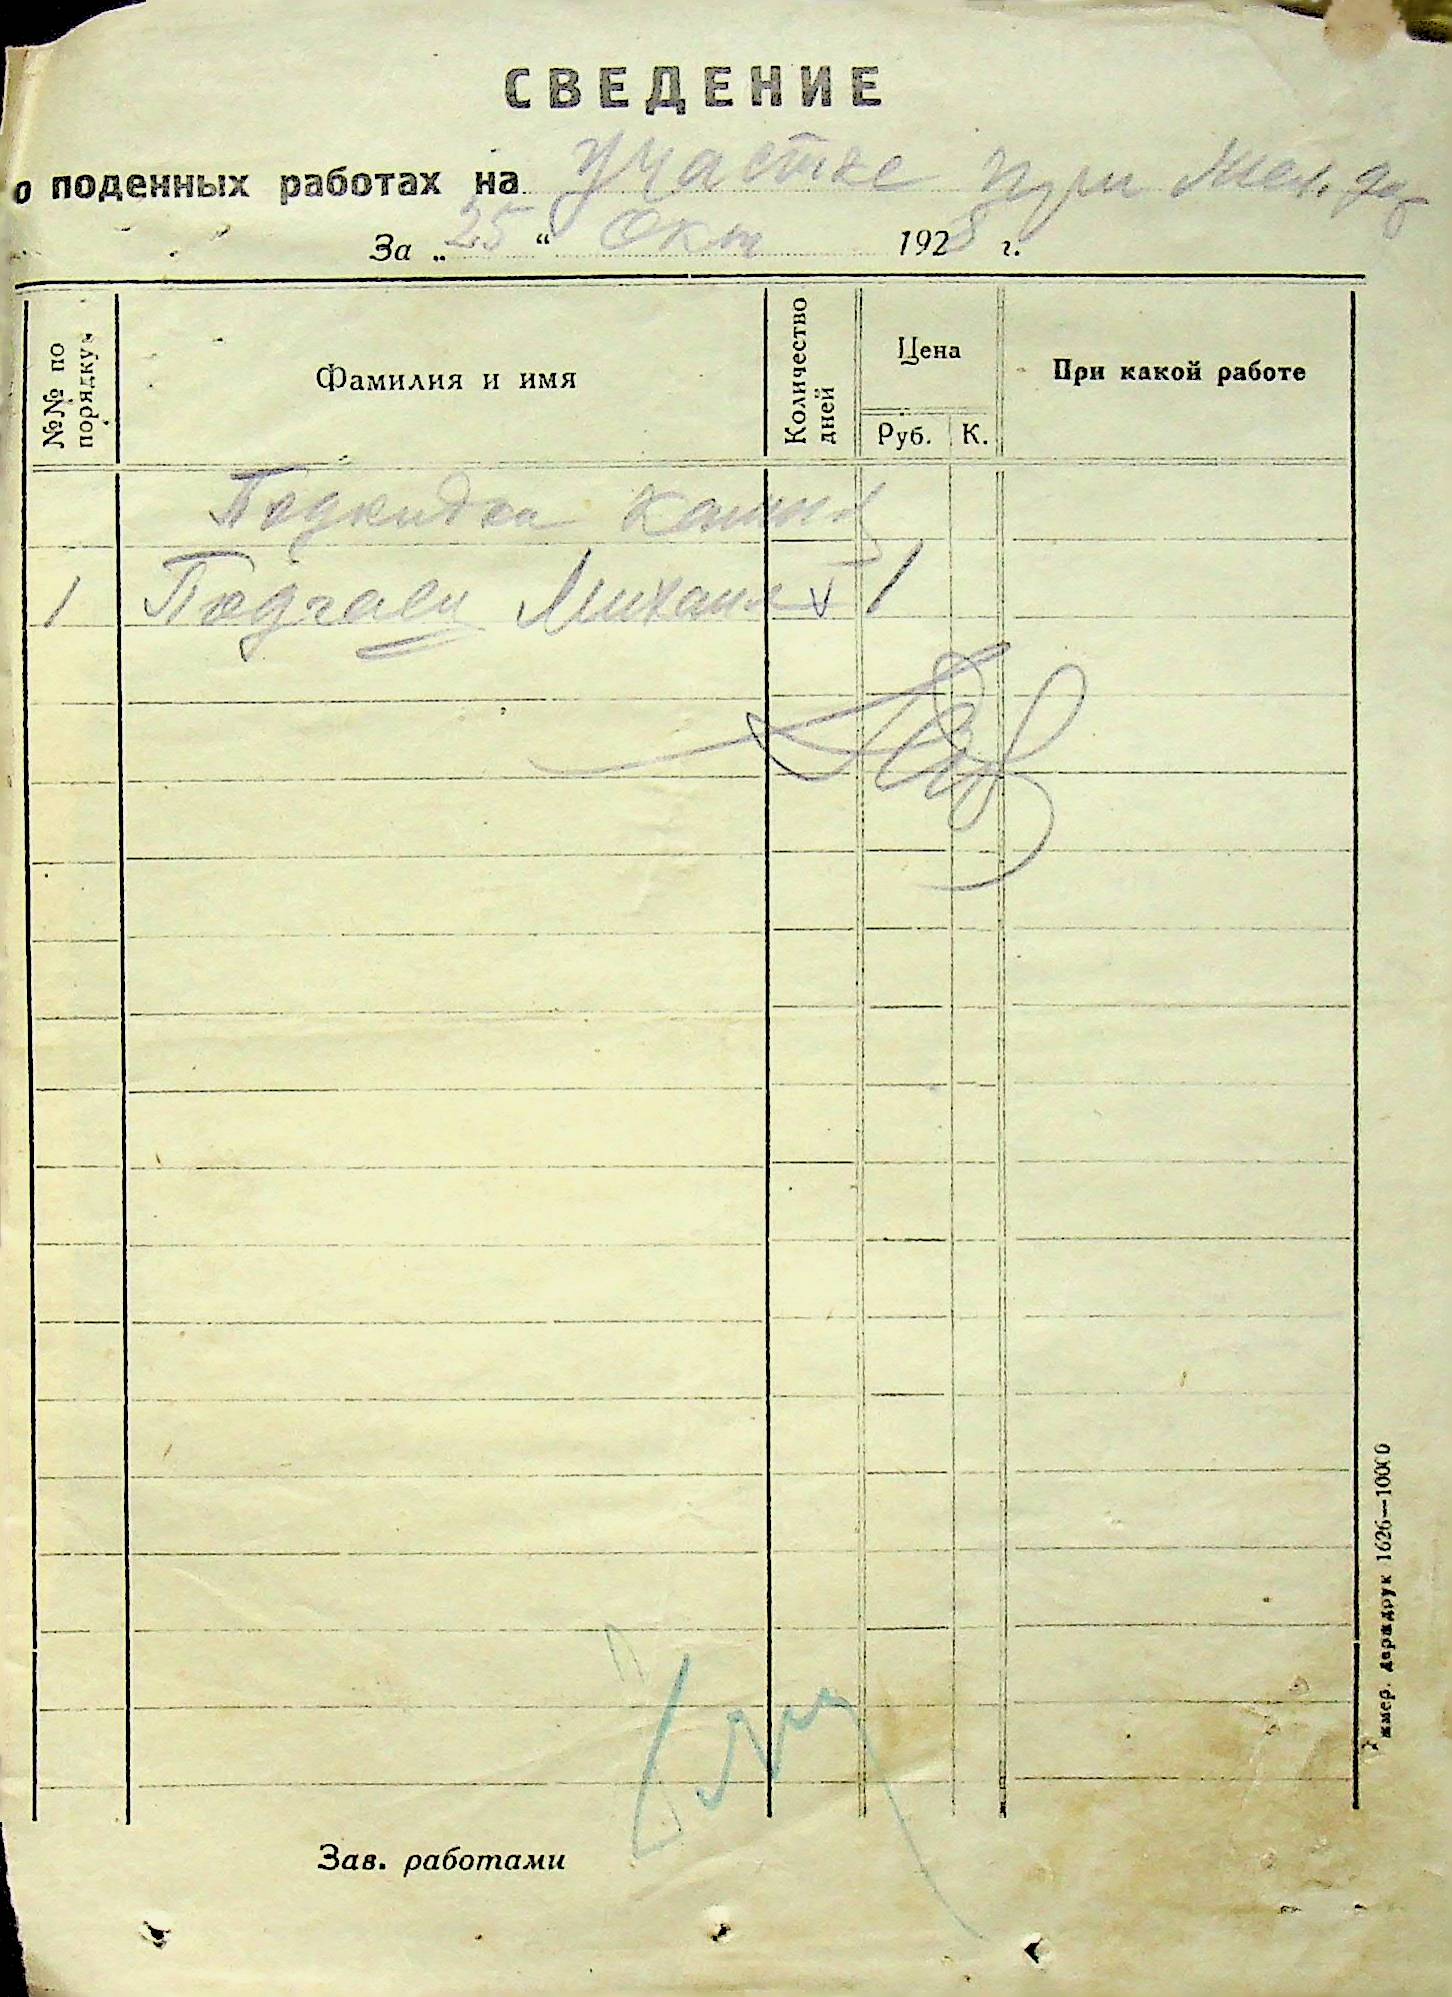 СВЕДЕНИЕ
о поденных работах на участке при Жел. дор
За „ 25 “ Окт 1928 г.
№№ по порядку
Фамилия и имя
Количество дней
Цена
Руб. К.
При какой работе
Подкидка
1 Михаил 1
Зав. работами
держдрук 1626—10000